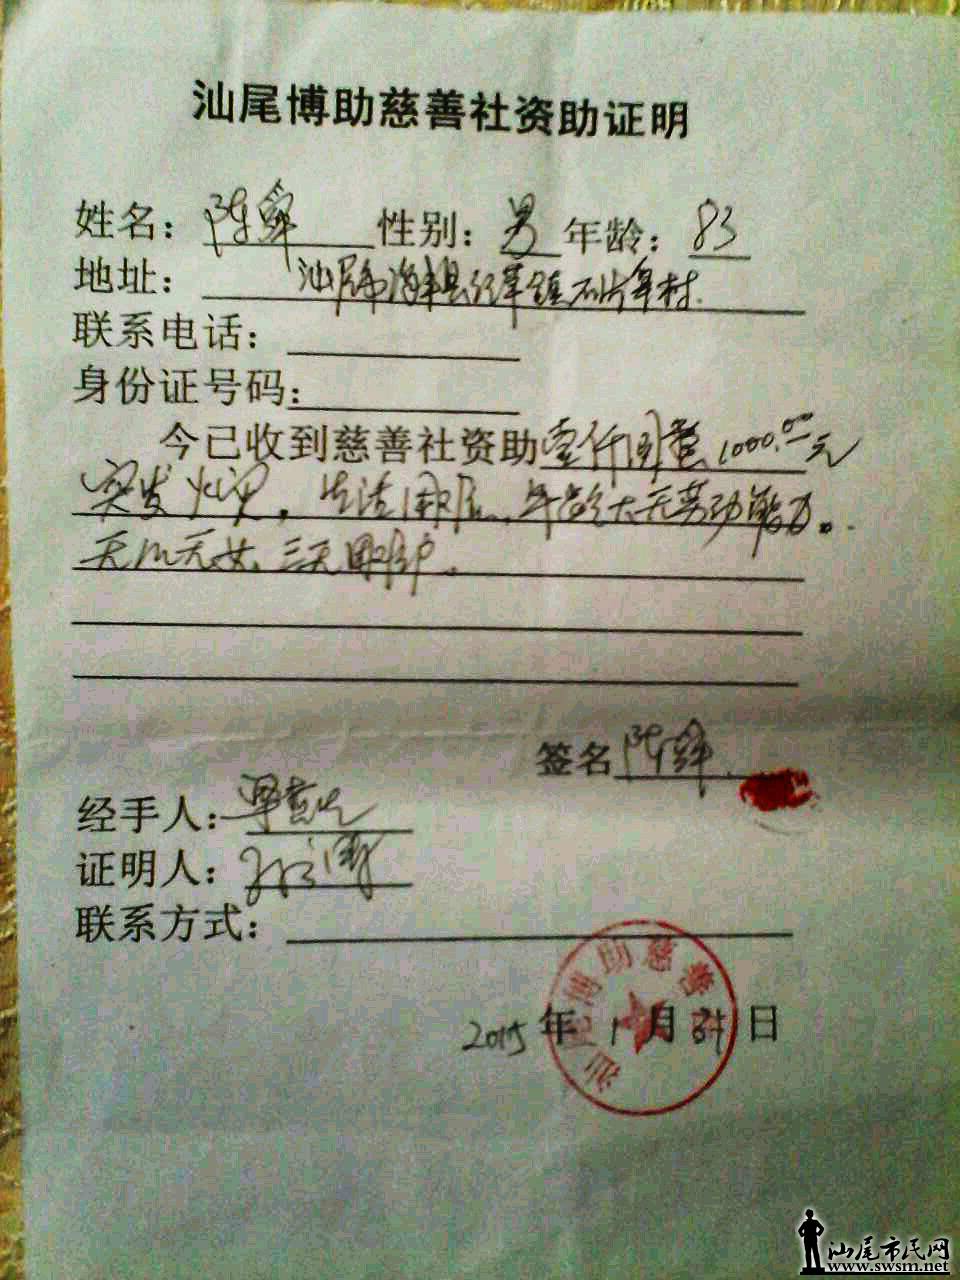 汕尾博助慈善社资助证明
姓名：陈 性别：男 年龄：83
地址：汕尾市海丰县 镇 村
联系电话：
身份证号码：
今已收到慈善社资助壹仟圆整1000.00元
突发 ，生活困难，年龄大无劳动能力。
无儿无女
签名 陈
经手人：
证明人：
联系方式：
2015年1月 日
汕尾博助慈善社
汕尾市民网
www.swsm.net